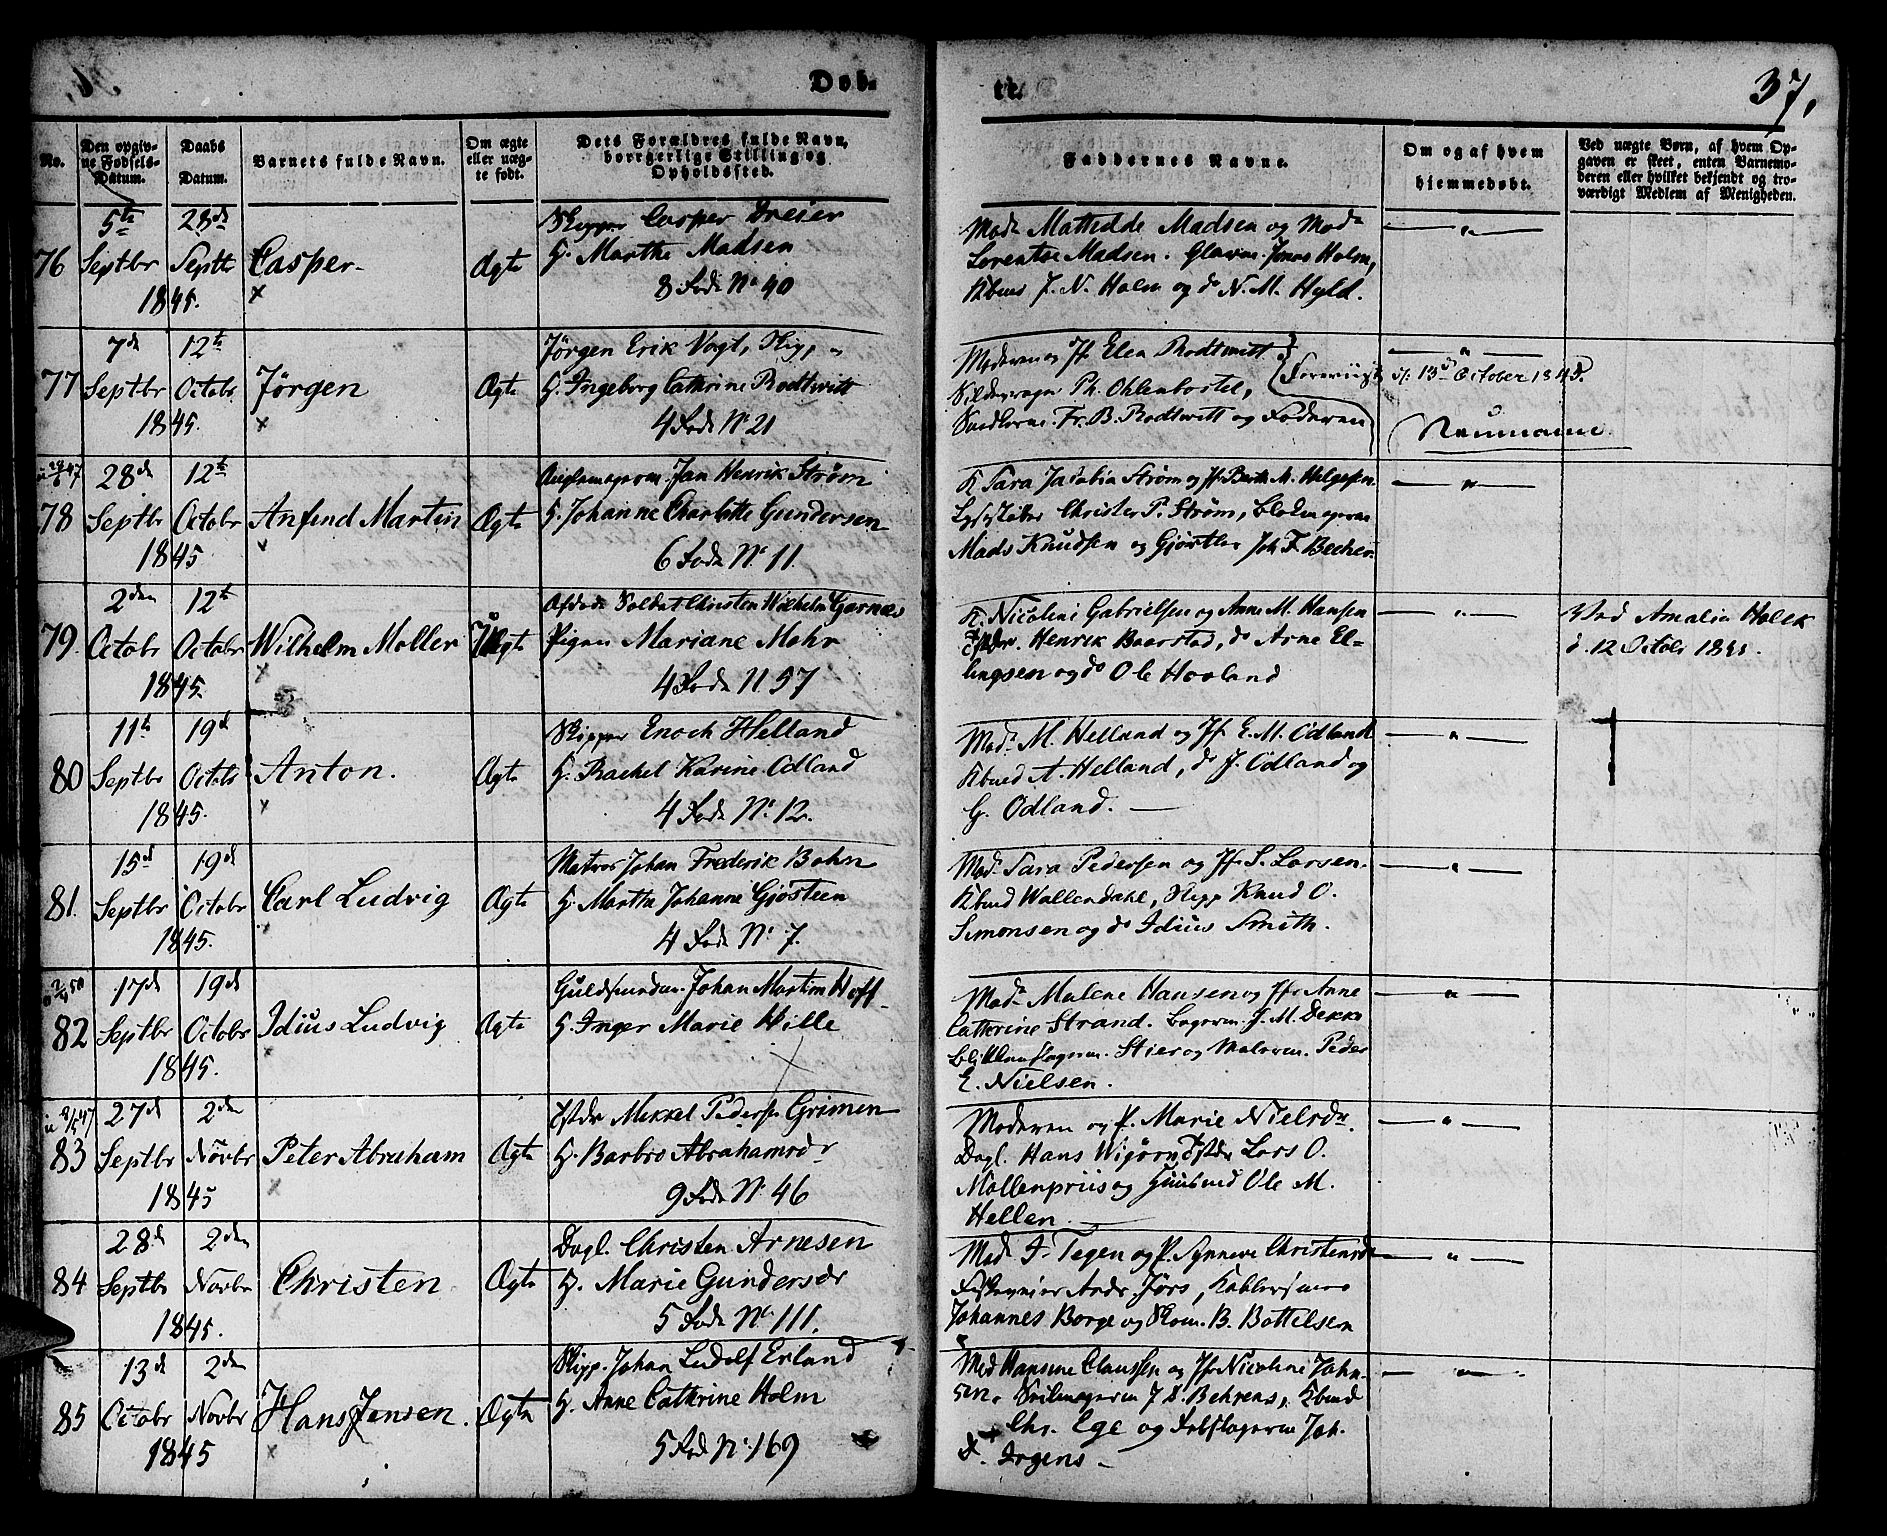 Døb-
te.
37.
No.
Den opgiv-
ne Fødsels-
Datum.
Daabs
Datum.
Barnets fulde Navn.
Om ægte
eller uæg-
te født.
Dets Forældres fulde Navn,
borgerlige Stilling og
Opholdssted.
Faddernes Navne.
Om og af hvem
hjemmedøbt.
Ved uægte Børn, af hvem Op-
gaven er skeet, enten Barnemo-
deren eller hvilket bekjendt og tro-
værdigt Medlem af Menigheden.
76
5te
Septbr
1845.
28de
Septbr
Casper
Ægte
Skipper Casper Dreier
H. Marthe Madsen
8 Rode No 40
Mad. Mathilde Madsen og Mad.
Lorentse Madsen. Glarm. Jonas Holm,
Kbmd J. N. Holm og do N. M. Hyld.
77
7de
Septbr
1845.
12te
Octobr
Jørgen
Ægte
Jørgen Erik Vogt,
H. Ingeborg Cathrine Rodtwitt
4 Rode No 21
Moderen og Jf. Elen Rodtwitt
Ph. Ohlenbostel,
Fr. B. Rodtwitt og Faderen
13de October 1845.
Neumann
78
28de
Septbr
1845
12te
Octobr
Anfind Martin
Ægte
Jan Henrik Strøm
H. Johanne Charlotte Gundersen
6 Rode No 11.
K. Sara Jacobia Strøm og Jf. Berth M. Helgesen
Christer P. Strøm, Blokmagerne
Mads Knudsen og Gjørtler Joh F. Becher
79.
2den
Octobr
1845.
12te
Octobr
Wilhelm Møller
Uægte
Afdøde Soldat Christen Wilhelm Garnæs
Pigen Mariane Mohr
4 Rode N 57
K. Nicoline Gabrielsen og Anne M. Hansen
Henrik Baarstad, do Arne El-
lingsen og do Ole Hovland
Ved Amalia Holck
d. 12 Octobr 1845.
80
11te
Septbr
1845.
19de
Octobr
Anton.
Ægte
Skipper Enoch Helland
H. Rachel Karine Odland
4 Rode No 12.
Mad. M. Helland og Jf. E. M. Odland
Kbmd A. Helland, do J. Odland og
G. Odland.
81.
15de
Septbr
1845.
19de
Octobr
Carl Ludvig
Ægte
Matros Johan Frederik Bohn
H. Martha Johanne Gjøsteen
4 Rode No 7.
Mad. Sara Pedersen og Jf. S. Larsen.
Kbmd Wallendahl, Skipp Knud O.
Simonsen og do Idius Smith.
82
17de
Septbr
1845.
19de
Octobr
Idius Ludvig
Ægte
Guldsmed Johan Martin Hoff
H. Inger Marie Hille
Mad. Malene Hansen og Jf. Anne
Cathrine Strand. Bagerm. J. M. Dekke
Stier og Malerm. Peder
E. Nielsen.
83
27de
Septbr
1845
2den
Novbr
Peter Abraham
Ægte
Mikkel Peders. Grimen
H. Barbro Abrahamsdr
9 Rode No 46
Moderen og P. Marie Nielsdr.
Dagl. Hans Wigørn Lars O.
Møllenpriis og Huusmd Ole M.
Hellen
84
28de
Septbr
1845.
2den
Novbr
Christen
Ægte
Dagl. Christen Arnesen
H. Marie Gundersdr
5 Rode No 111.
Mad I. Tegen og P. Synneve Christensdr
Andr. Jørs,
Johannes Borge og Skom. B. Bottelsen
85
13de
Octobr
1845
2den
Novbr
Hans Jensen.
Ægte
Skipp. Johan Ludolf Erland
H. Anne Cathrine Holm
5 Rode No 169
Mad Hansine Claussen og Jfr Nicoline John-
sen. Seilmagerm J. D. Behrens, Kbmd
Chr. Ege og Joh.
D. Irgens